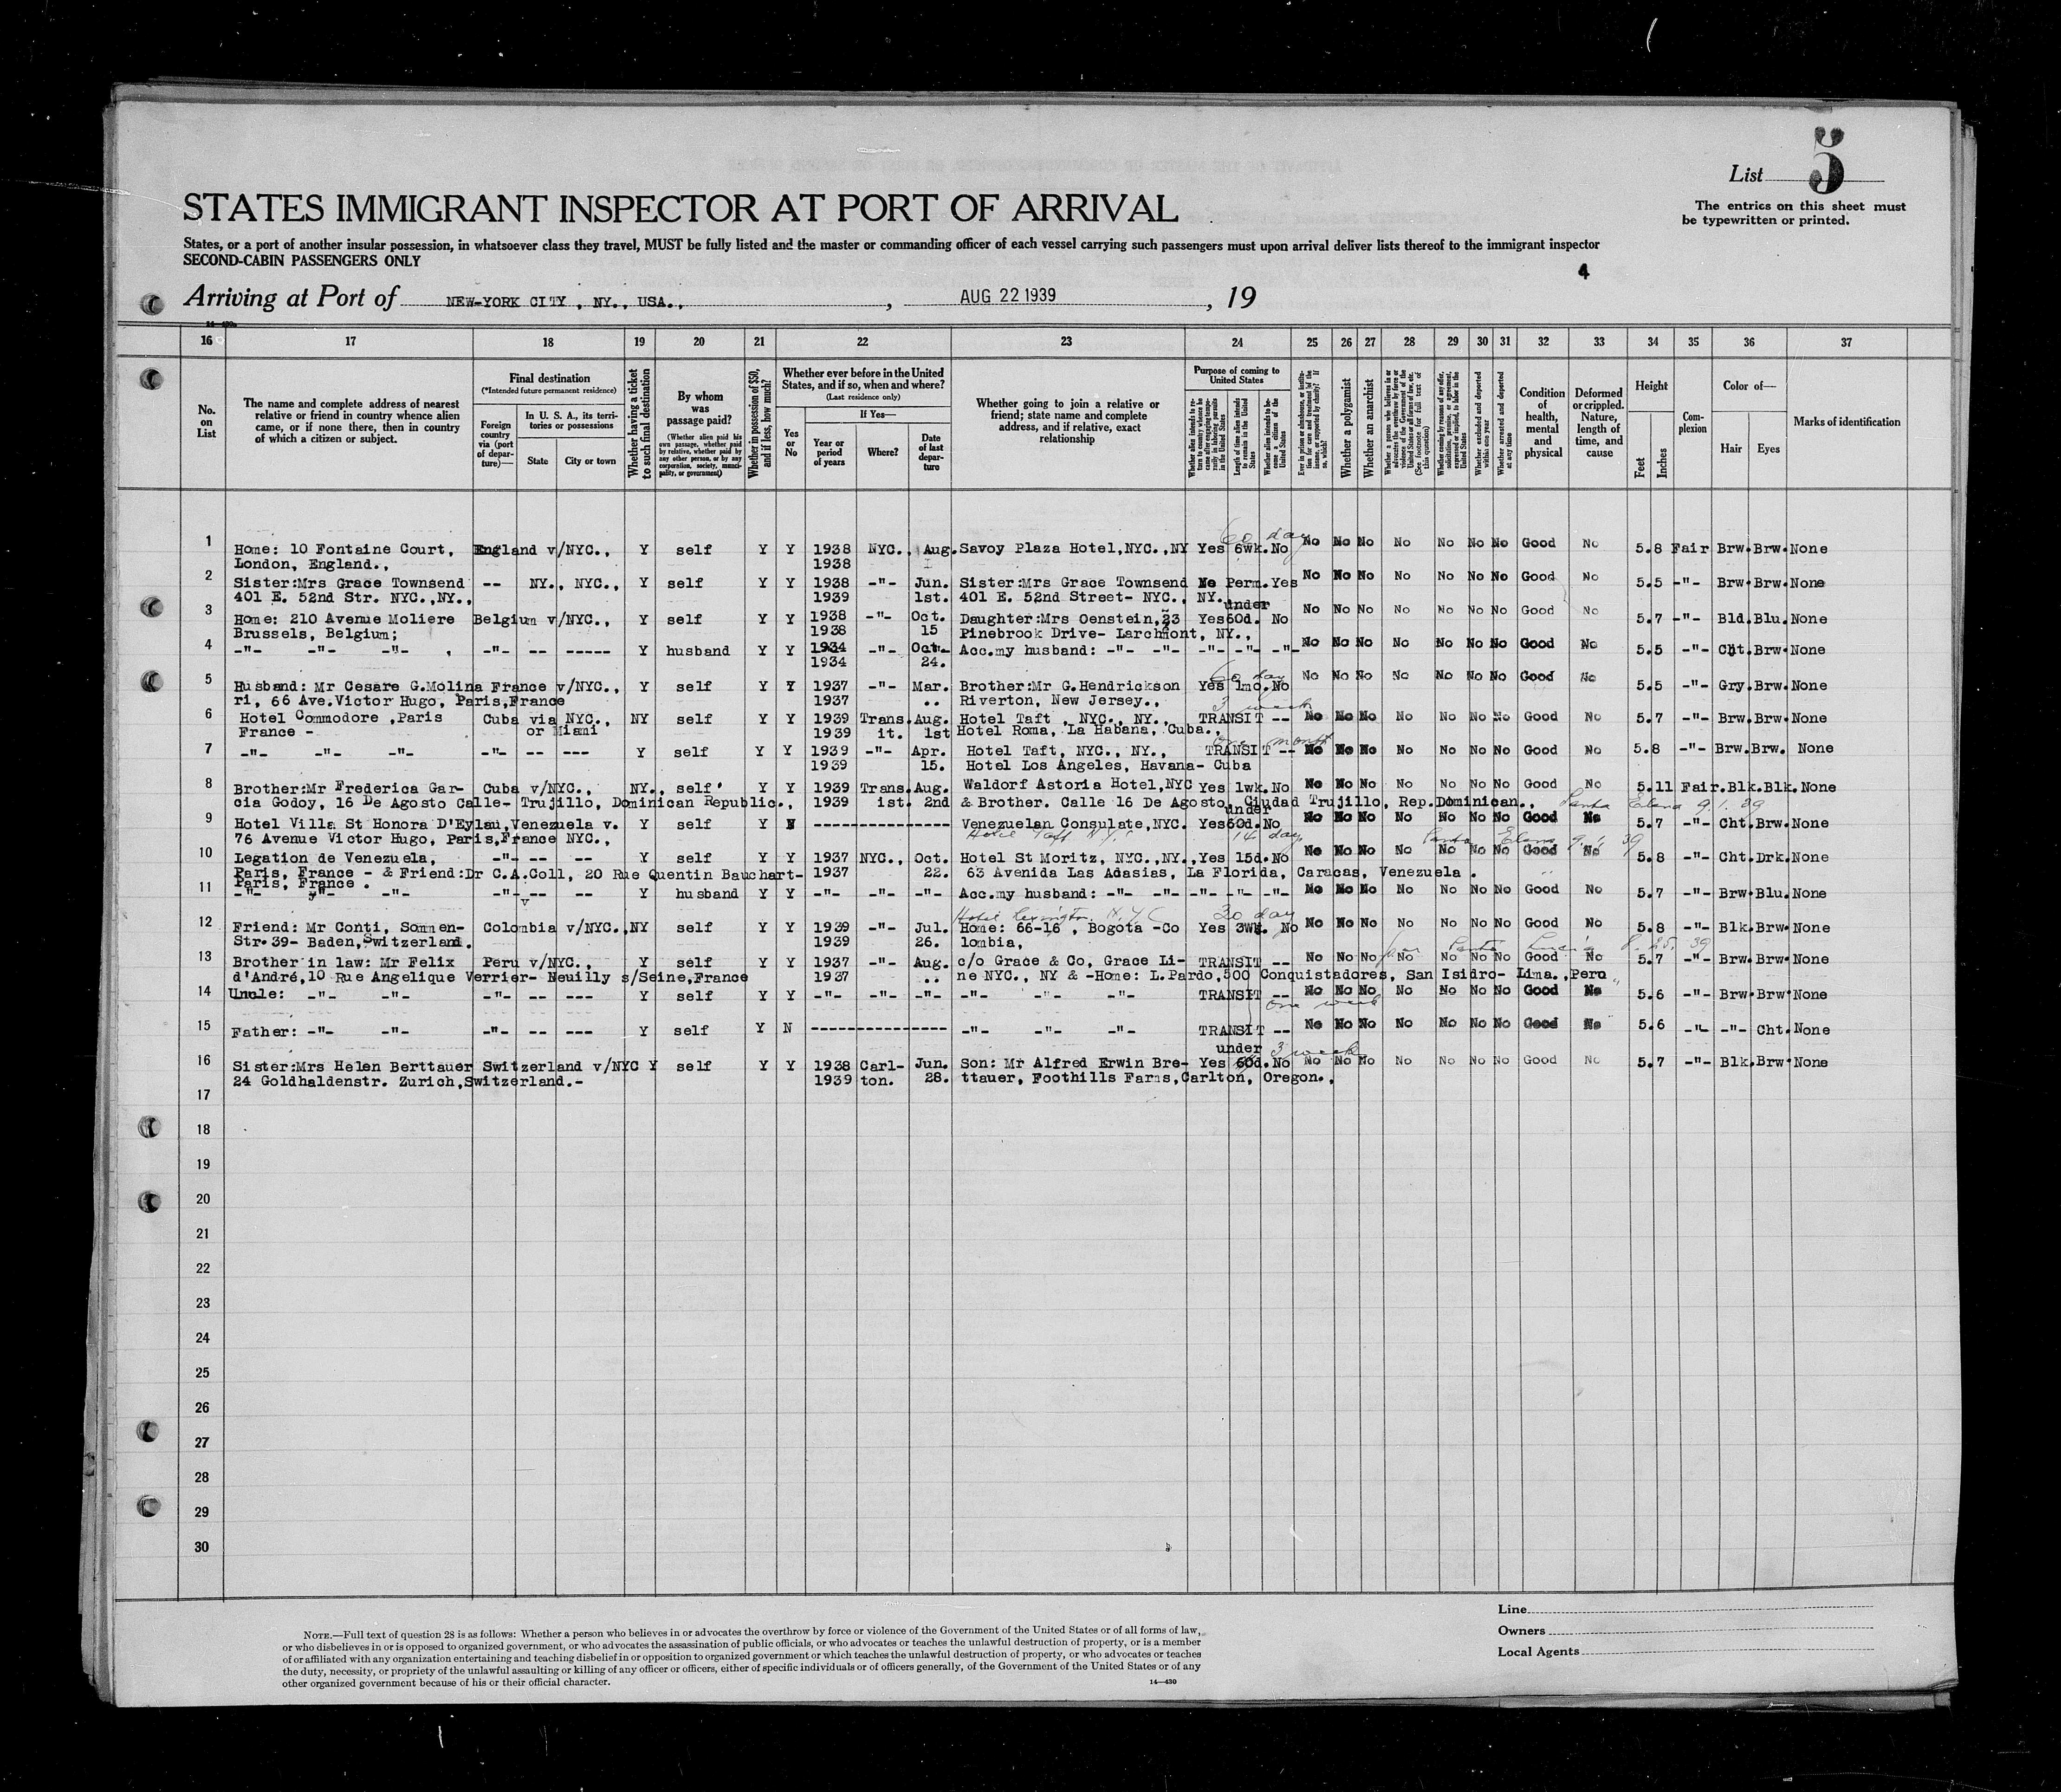 List 5
The entries on this sheet must
be typewritten or printed.
STATES IMMIGRANT INSPECTOR AT PORT OF ARRIVAL
States, or a port of another insular possession, in whatsoever class they travel, MUST be fully listed and the master or commanding officer of each vessel carrying such passengers must upon arrival deliver lists thereof to the immigrant inspector
SECOND-CABIN PASSENGERS ONLY
4
Arriving at Port of NEW-YORK CITY , NY., USA., , AUG 22 1939 , 19
16 17 18 19 20 21 22 23 24 25 26 27 28 29 30 31 32 33 34 35 36 37
No. on List
The name and complete address of nearest relative or friend in country whence alien came, or if none there, then in country of which a citizen or subject.
Final destination
(*Intended future permanent residence)
Foreign country via (port of departure)—
In U. S. A., its territories or possessions
State
City or town
Whether having a ticket to such final destination
By whom was passage paid?
(Whether alien paid his own passage, whether paid by relative, whether paid by any other person, or by any corporation, society, municipality, or government)
Whether in possession of $50, and if less, how much?
Whether ever before in the United States, and if so, when and where?
(Last residence only)
Yes or No
If Yes—
Year or period of years
Where?
Date of last departure
Whether going to join a relative or friend; state name and complete address, and if relative, exact relationship
Purpose of coming to United States
Whether alien intends to return to country whence he came after engaging temporarily in laboring pursuits in the United States
Length of time alien intends to remain in the United States
Whether alien intends to become a citizen of the United States
Ever in prison or almshouse, or institution for care and treatment of the insane, or supported by charity? If so, which?
Whether a polygamist
Whether an anarchist
(See footnote for full text of this question)
Whether excluded and deported within one year
Whether arrested and deported at any time
Condition of health, mental and physical
Deformed or crippled. Nature, length of time, and cause
Height
Feet
Inches
Complexion
Color of—
Hair
Eyes
Marks of identification
60 day
1 Home: 10 Fontaine Court, England v/NYC., Y self Y Y 1938 NYC., Aug. Savoy Plaza Hotel,NYC.,NY Yes 6wk.No No No No No No No No Good No 5.8 Fair Brw.Brw.None
London, England., 1938
2 Sister:Mrs Grace Townsend -- NY., NYC., Y self Y Y 1938 -"- Jun. Sister:Mrs Grace Townsend No Perm.Yes No No No No No No No Good No 5.5 -"- Brw.Brw.None
401 E. 52nd Str. NYC.,NY., 1939 1st. 401 E. 52nd Street- NYC., NY.
under
3 Home: 210 Avenue Moliere Belgium v/NYC., Y self Y Y 1938 -"- Oct. Daughter:Mrs Oenstein,23 Yes 60d. No No No No No No No No Good No 5.7 -"- Bld.Blu.None
Brussels, Belgium; 1938 15 Pinebrook Drive- Larchmont, NY.,
4 -"- -"- -"- , -"- -- ----- Y husband Y Y 1934 -"- Oct. Acc.my husband: -"- -"- -"- -"- -"- No No No No No No No Good No 5.5 -"- Cht.Brw.None
1934 24.
60 day
5 Husband: Mr Cesare G.Molina France v/NYC., Y self Y Y 1937 -"- Mar. Brother:Mr G.Hendrickson Yes 1mo.No No No No No No No No Good No 5.5 -"- Gry.Brw.None
ri, 66 Ave.Victor Hugo, Paris,France 1937 .. Riverton, New Jersey.,
3 week
6 Hotel Commodore ,Paris Cuba via NYC., NY self Y Y 1939 Trans. Aug. Hotel Taft , NYC., NY., TRANSIT -- No No No No No No No Good No 5.7 -"- Brw.Brw.None
France - or Miami 1939 it. 1st Hotel Roma, La Habana, Cuba.,
one month
7 -"- -"- -"- -"- -- --- Y self Y Y 1939 -"- Apr. Hotel Taft, NYC., NY., TRANSIT -- No No No No No No No Good No 5.8 -"- Brw.Brw. None
1939 15. Hotel Los Angeles, Havana- Cuba
8 Brother:Mr Frederica Gar- Cuba v/NYC., NY., self Y Y 1939 Trans. Aug. Waldorf Astoria Hotel,NYC Yes 1wk.No No No No No No No No Good No 5.11 Fair.Blk.Blk.None
cia Godoy, 16 De Agosto Calle- Trujillo, Dominican Republic., 1939 ist. 2nd & Brother. Calle 16 De Agosto, Ciudad Trujillo, Rep.Dominican., Santa Elena 9.1.39
under
9 Hotel Villa St Honora D'Eylau,Venezuela v. Y self Y N -------------- Venezuelan Consulate,NYC. Yes 60d.No No No No No No No No Good No 5.7 -"- Cht.Brw.None
76 Avenue Victor Hugo, Paris,France NYC., Hotel Taft N.Y.C 14 day Santa Elena 9.1.39
10 Legation de Venezuela, -"- -- -- Y self Y Y 1937 NYC., Oct. Hotel St Moritz, NYC.,NY., Yes 15d.No No No No No No No No Good No 5.8 -"- Cht.Drk.None
Paris, France - & Friend:Dr C.A.Coll, 20 Rue Quentin Bauchart- 1937 22. 63 Avenida Las Adasias, La Florida, Caracas, Venezuela .
Paris, France .
11 -"- -"- -"- -"- -- -- Y husband Y Y -"- -"- -"- Acc.my husband: -"- -"- -"- -"- -"- No No No No No No No Good No 5.7 -"- Brw.Blu.None
Hotel Lexington N.Y.C 30 day
12 Friend: Mr Conti, Sonnen- Colombia v/NYC.,NY self Y Y 1939 -"- Jul. Home: 66-16 , Bogota -Co Yes 3Wk. No No No No No No No No Good No 5.8 -"- Blk.Brw.None
Str.39- Baden,Switzerland. 1939 26. lombia, Santa Lucia 8.25.39
13 Brother in law: Mr Felix Peru v/NYC., Y self Y Y 1937 -"- Aug. c/o Grace & Co, Grace Li- TRANSIT -- No No No No No No No Good No 5.7 -"- Brw.Brw.None
d'André,10 Rue Angelique Verrier- Neuilly s/Seine,France 1937 .. ne NYC., NY & -Home: L.Pardo,500 Conquistadores, San Isidro- Lima.,Peru
14 Uncle: -"- -"- -"- -- --- Y self Y Y -"- -"- -"- -"- -"- -"- TRANSIT -- No No No No No No No Good No 5.6 -"- Brw.Brw.None
one week
15 Father: -"- -"- -"- -- --- Y self Y N -------------- -"- -"- -"- TRANSIT -- No No No No No No No Good No 5.6 -"- -"- Cht.None
under 3 week
16 Sister:Mrs Helen Berttauer Switzerland v/NYC Y self Y Y 1938 Carl- Jun. Son: Mr Alfred Erwin Bre- Yes 60d.No No No No No No No No Good No 5.7 -"- Blk.Brw.None
24 Goldhaldenstr. Zurich,Switzerland.- 1939 ton. 28. ttauer, Foothills Farms,Carlton, Oregon.,
17
18
19
20
21
22
23
24
25
26
27
28
29
30
Line
Owners
Local Agents
NOTE.—Full text of question 28 is as follows: Whether a person who believes in or advocates the overthrow by force or violence of the Government of the United States or of all forms of law,
or who disbelieves in or is opposed to organized government, or who advocates the assassination of public officials, or who advocates or teaches the unlawful destruction of property, or is a member
of or affiliated with any organization entertaining and teaching disbelief in or opposition to organized government or which teaches the unlawful destruction of property, or who advocates or teaches
the duty, necessity, or propriety of the unlawful assaulting or killing of any officer or officers, either of specific individuals or of officers generally, of the Government of the United States or of any
other organized government because of his or their official character.
14—430